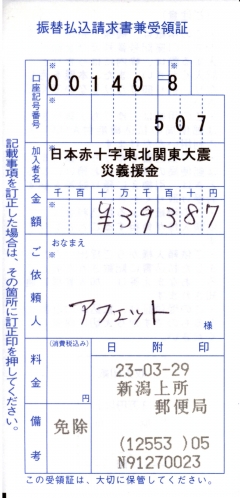 振替払込請求書兼受領証
口座記号番号
※
00140 8
※
507
加入者名
日本赤十字東北関東大震
災義援金
金額
千 百 十 万 千 百 十 円
※
¥39387
ご依頼人
おなまえ
※
アフェット
様
料金
(消費税込み)
円
日 附 印
23-03-29
新潟上所
郵便局
(12553 )05
N91270023
備考
免除
この受領証は、大切に保管してください。
記載事項を訂正した場合は、その箇所に訂正印を押してください。